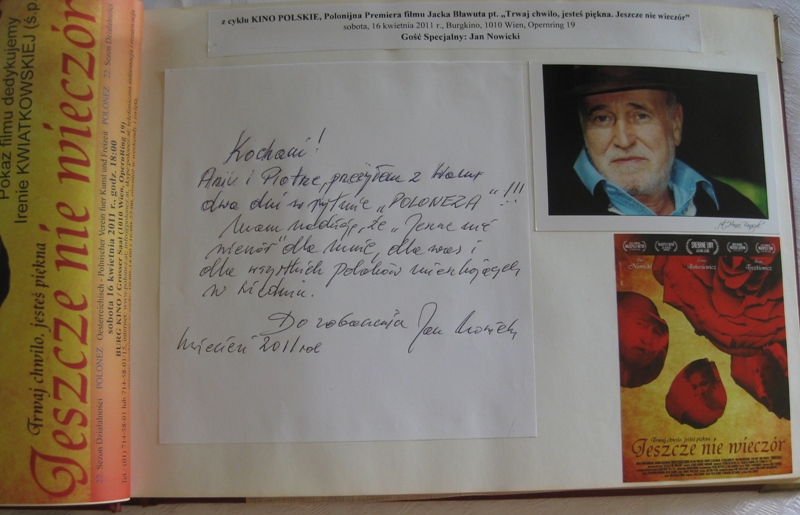 z cyklu KINO POLSKIE, Polonijna Premiera filmu Jacka Bławuta pt. „Trwaj chwilo, jesteś piękna. Jeszcze nie wieczór”
sobota, 16 kwietnia 2011 r., Burgkino, 1010 Wien, Opernring 19
Gość Specjalny: Jan Nowicki
Pokaz filmu dedykujemy
Irenie KWIATKOWSKIEJ (ś.p.
Trwaj chwilo, jesteś piękna
Jeszcze nie wieczór
22. Sezon Działalności POLONEZ Oesterreichisch - Polnischer Verein fuer Kunst und Freizeit POLONEZ 22. Sezon Działalności
sobota 16 kwietnia 2011 r., godz. 18:00
BURG KINO / Grosser Saal (1010 Wien, Opernring 19)
Kochani!
Aniu i Piotrze, przeżyłem z Wami
dwa dni w rytmie „POLONEZA”!!!
Mam nadzieję, że „Jeszcze nie
wieczór” dla mnie, dla was i
dla wszystkich Polaków mieszkających
w Wiedniu.
Do zobaczenia Jan Nowicki
kwiecień 2011 rok
Jan Nowicki
Trwaj chwilo, jesteś piękna
Jeszcze nie wieczór